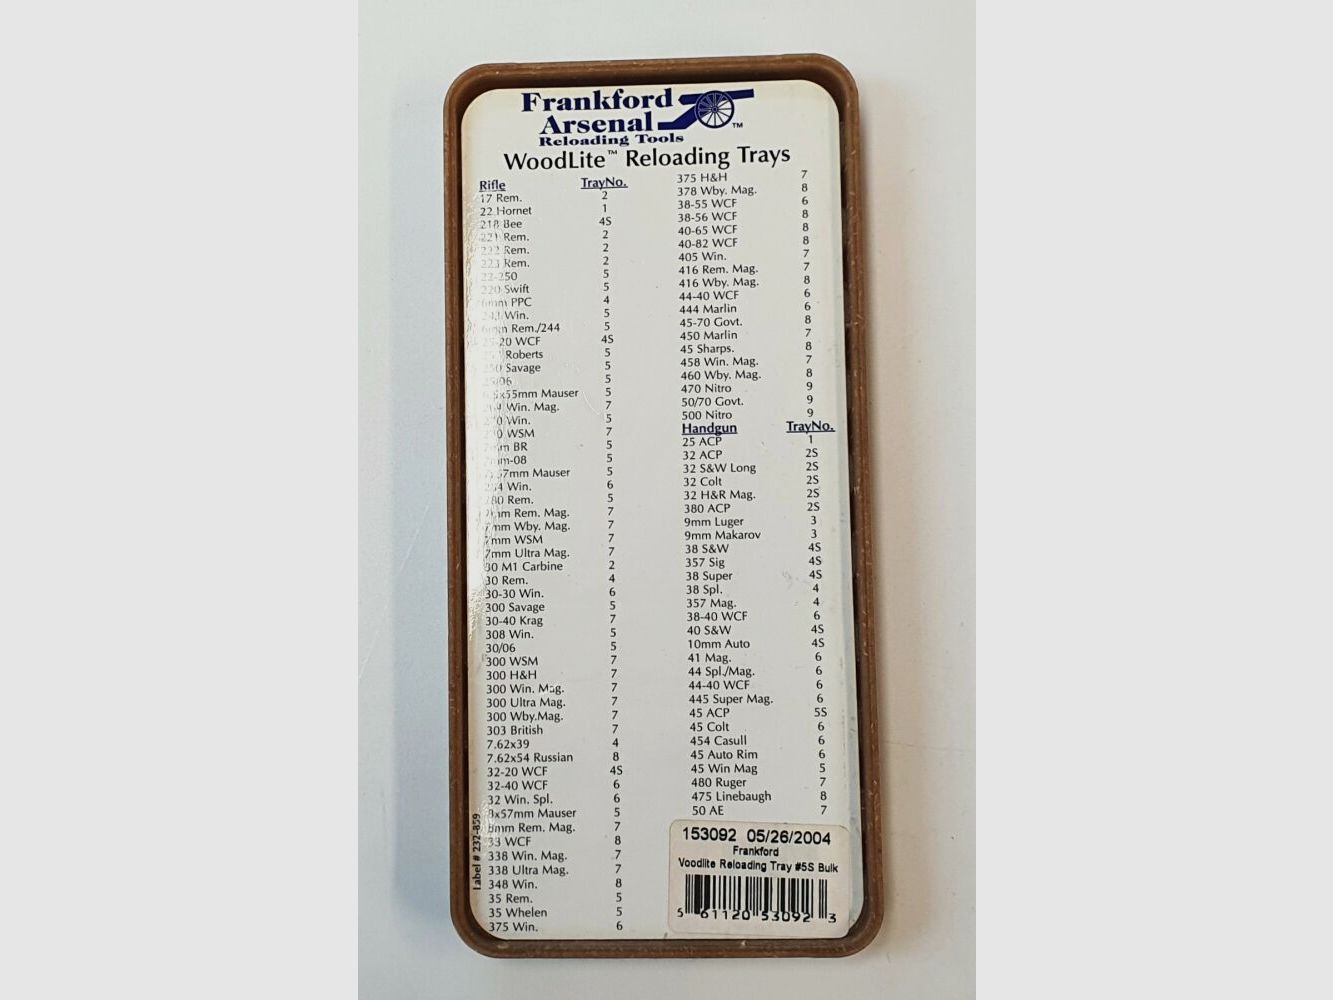 Frankford
Arsenal ™
Reloading Tools
WoodLite™ Reloading Trays
Rifle TrayNo.
17 Rem. 2
22 Hornet 1
218 Bee 4S
221 Rem. 2
222 Rem. 2
223 Rem. 2
22-250 5
220 Swift 5
6mm PPC 4
243 Win. 5
6mm Rem./244 5
25-20 WCF 4S
257 Roberts 5
250 Savage 5
25/06 5
6.5x55mm Mauser 5
264 Win. Mag. 7
270 Win. 5
270 WSM 7
7mm BR 5
7mm-08 5
7x57mm Mauser 5
284 Win. 6
280 Rem. 5
7mm Rem. Mag. 7
7mm Wby. Mag. 7
7mm WSM 7
7mm Ultra Mag. 7
30 M1 Carbine 2
30 Rem. 4
30-30 Win. 6
300 Savage 5
30-40 Krag 7
308 Win. 5
30/06 5
300 WSM 7
300 H&H 7
300 Win. Mag. 7
300 Ultra Mag. 7
300 Wby.Mag. 7
303 British 7
7.62x39 4
7.62x54 Russian 8
32-20 WCF 4S
32-40 WCF 6
32 Win. Spl. 6
8x57mm Mauser 5
8mm Rem. Mag. 7
33 WCF 8
338 Win. Mag. 7
338 Ultra Mag. 7
348 Win. 8
35 Rem. 5
35 Whelen 5
375 Win. 6
375 H&H 7
378 Wby. Mag. 8
38-55 WCF 6
38-56 WCF 8
40-65 WCF 8
40-82 WCF 8
405 Win. 7
416 Rem. Mag. 7
416 Wby. Mag. 8
44-40 WCF 6
444 Marlin 6
45-70 Govt. 8
450 Marlin 7
45 Sharps. 8
458 Win. Mag. 7
460 Wby. Mag. 8
470 Nitro 9
50/70 Govt. 9
500 Nitro 9
Handgun TrayNo.
25 ACP 1
32 ACP 2S
32 S&W Long 2S
32 Colt 2S
32 H&R Mag. 2S
380 ACP 2S
9mm Luger 3
9mm Makarov 3
38 S&W 4S
357 Sig 4S
38 Super 4S
38 Spl. 4
357 Mag. 4
38-40 WCF 6
40 S&W 4S
10mm Auto 4S
41 Mag. 6
44 Spl./Mag. 6
44-40 WCF 6
445 Super Mag. 6
45 ACP 5S
45 Colt 6
454 Casull 6
45 Auto Rim 6
45 Win Mag 5
480 Ruger 7
475 Linebaugh 8
50 AE 7
Label # 232-859
153092 05/26/2004
Frankford
Voodlite Reloading Tray #5S Bulk
5 61120 53092 3